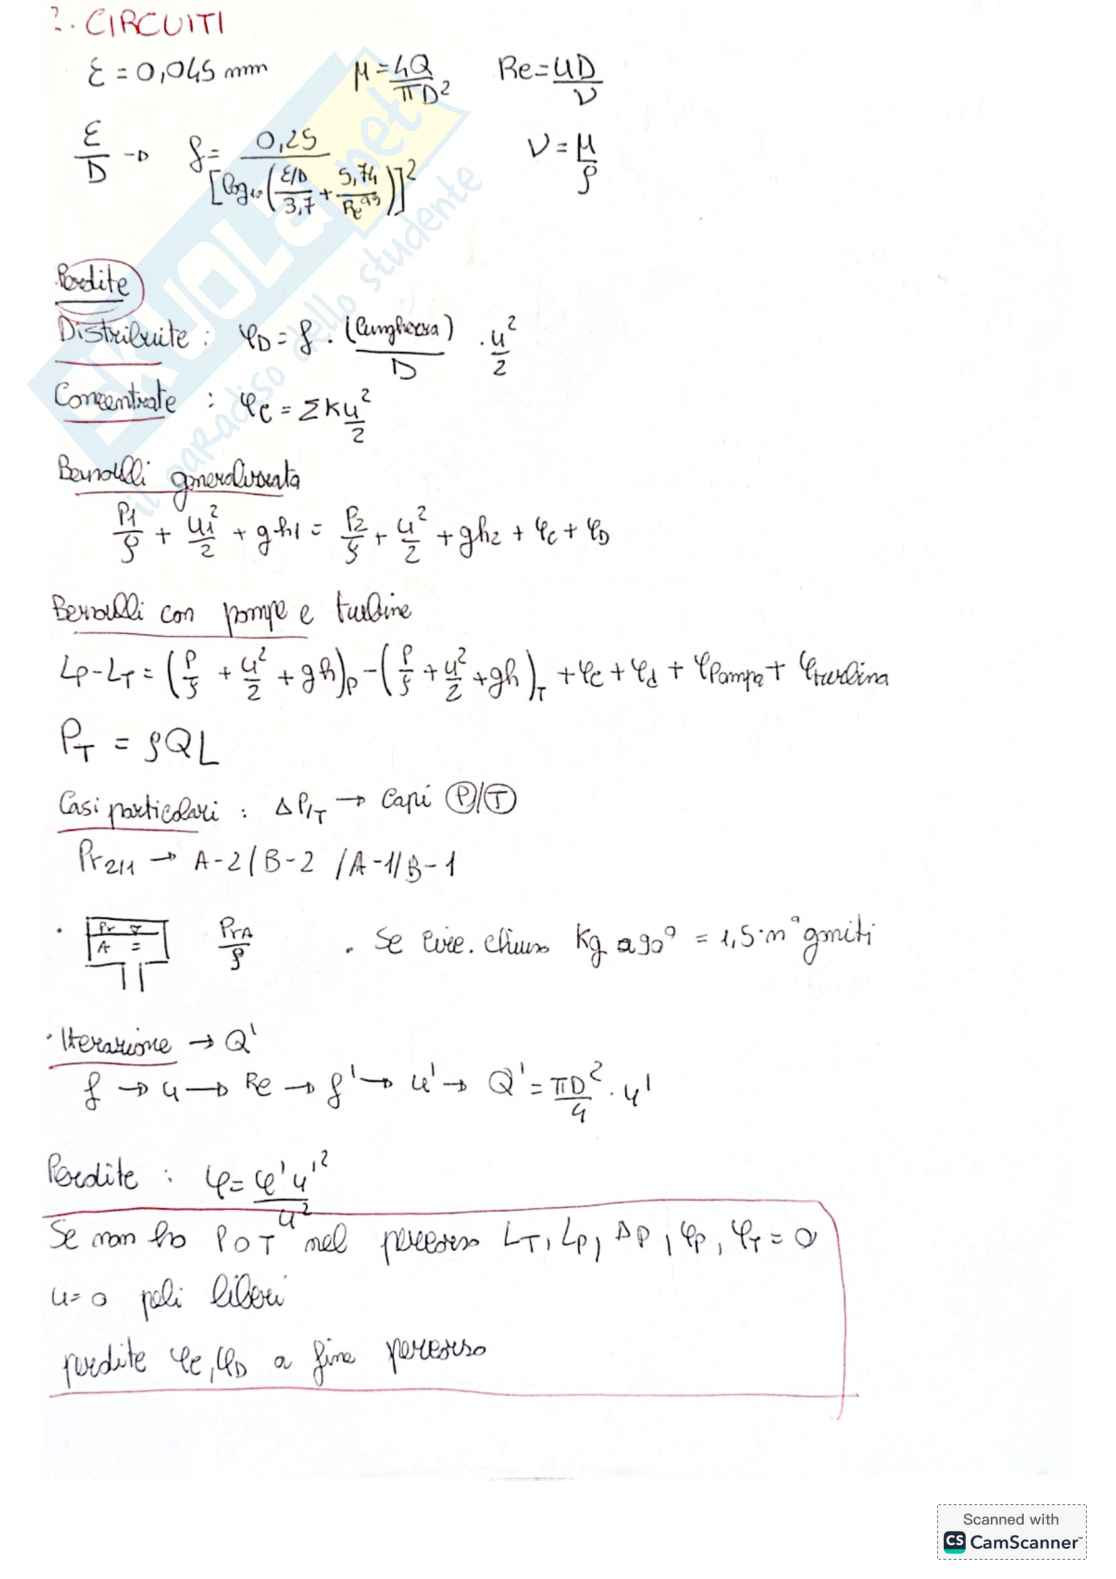 2. CIRCUITI
ε = 0,045 mm    μ = 4Q/πD²    Re = uD/ν
ε/D → f = 0,25/[log₁₀(ε/D/3,7 + 5,74/Re^0,9)]²    ν = μ/ρ
Perdite
Distribuite : φD = f · (lunghezza)/D · u²/2
Concentrate : φC = ΣK u²/2
Bernoulli generalizzata
P1/ρ + u1²/2 + gh1 = P2/ρ + u²/2 + gh2 + φC + φD
Bernoulli con pompe e turbine
LP - LT = (P/ρ + u²/2 + gh)P - (P/ρ + u²/2 + gh)T + φC + φd + φPompa + φturbina
PT = ρQL
Casi particolari : ΔP/T → capi P/T
Pr2/1 → A-2/B-2/A-1/B-1
· Pr A = PrA/ρ    . Se circ. chiuso Kg a 90° = 1,5·n° gomiti
· Iterazione → Q'
f → u → Re → f' → u' → Q' = πD²/4 · u'
Perdite : φ = φ'u'²/u²
Se non ho P o T nel percorso LT, LP, ΔP, φP, φT = 0
u=0 peli liberi
perdite φC, φD a fine percorso
SKUOLA.net
il paradiso dello studente
Scanned with
CS CamScanner